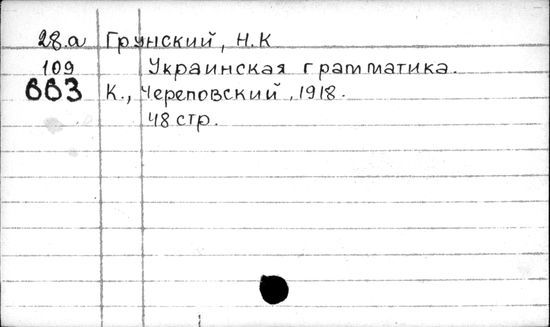 28.а Грунский, Н.К
109 Украинская грамматика.
663 К., Череповский, 1918.
48 стр.